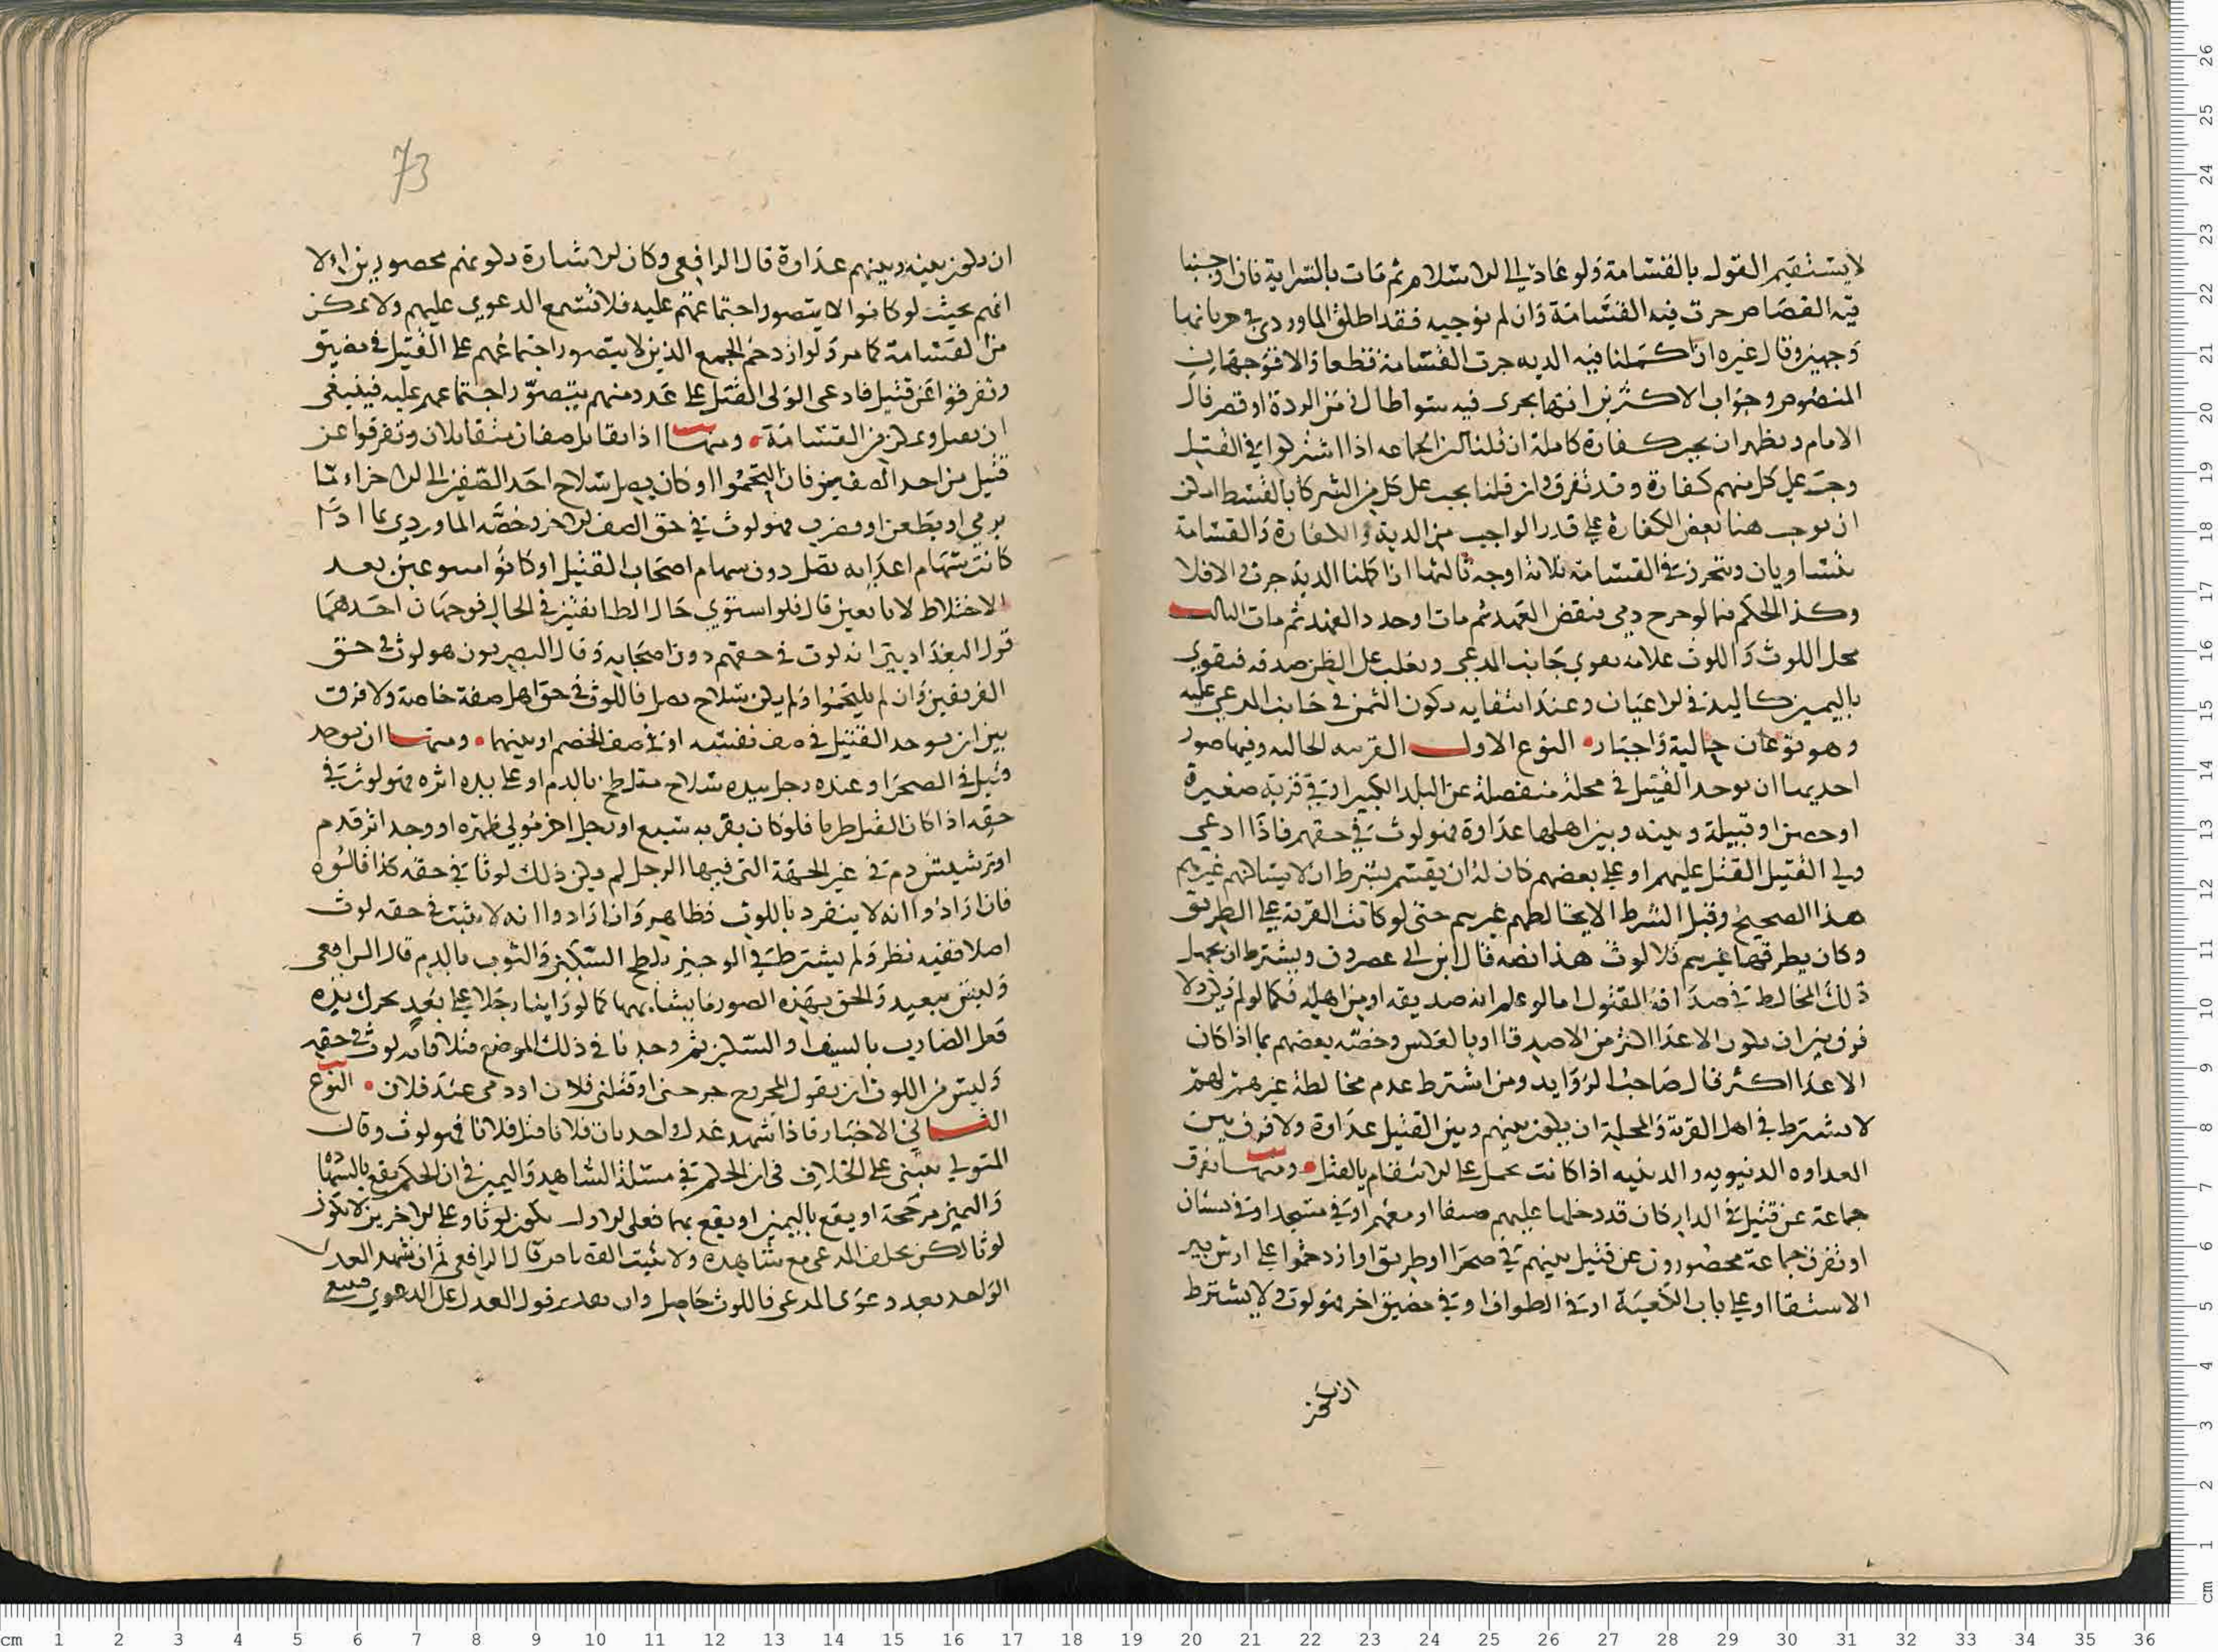 لا يستقيم القول بالقسامة ولو عاد الى الاسلام ثم مات بالسراية فان اوجبنا
فيه القصاص جرت فيه القسامة وان لم نوجبه فقد اطلق الماوردي في جريانها
وجهين وقال غيره ان اكملنا فيه الدية جرت القسامة قطعا والا فوجهان
المنصوص وجواب الاكثرين انها يجري فيه سوا طال زمن الردة او قصر قال
الامام ويظهر ان يجب كفارة كاملة ان قلنا الجماعه اذا اشتركوا في القتل
وجب على كل منهم كفارة وقد تفرق وان قلنا يجب على كل من الشركا بالقسط
ان نوجب هنا بعض الكفارة على قدر الواجب من الدية والكفارة والقسامة
متساويان ويتحرر في القسامة ثلاثة اوجه ثالثها ان اكملنا الدية جرت والا فلا
وكذا الحكم فيما لو جرح ذمي فنقض العهد ثم مات او جدد العهد ثم مات الثالث
محل اللوث واللوث علامة تقوي جانب المدعي ويغلب على الظن صدقه فيقوى
باليمين كاليد في الاعيان وعند انتفايه يكون اليمين في جانب المدعى عليه
وهو نوعان حالية واخبار النوع الاول القرينة الحالية وفيها صور
احديها ان يوجد القتيل في محلة منفصلة عن البلد الكبير او في قرية صغيرة
او حصن او قبيلة وبينه وبين اهلها عداوة فهو لوث في حقهم فاذا ادعى
ولي القتيل القتل عليهم او على بعضهم كان له ان يقسم بشرط ان لا يساكنهم غيرهم
هذا الصحيح وقيل الشرط الا يخالطهم غيرهم حتى لو كانت القرية على الطريق
وكان يطرقها غيرهم فلا لوث هذا نصه قال ابن ابي عصرون ويشترط ان يجهل
ذلك المخالط في صداقة المقتول اما لو علم انه صديقه او من اهله فكما لو لم يكن ولا
فرق بين ان يكون الاعدا اكثر من الاصدقا او بالعكس وخصه بعضهم بما اذا كان
الاعدا اكثر قال صاحب الزوايد ومن اشترط عدم مخالطة غيرهم لهم
لا يشترط في اهل القرية والمحلة ان يكون بينهم وبين القتيل عداوة ولا فرق بين
العداوه الدنيويه والدينيه اذا كانت تحمل على الانتقام بالقتل ومنها تفرق
جماعة عن قتيل في الدار كان قد دخلها عليهم ضيفا او معهم او في مسجد او في بستان
او تفرق جماعة محصورون عن قتيل بينهم في صحرا او طريق او ازدحموا على ارش بير
الاستقا او على باب الكعبة او في الطواف او في مضيق اخر فهو لوث ولا يشترط
ان يكون
73
ان يكون بينه وبينهم عداوة قال الرافعي وكان الاشارة بكونهم محصورين الا
انهم بحيث لو كانوا لا يتصور اجتماعهم عليه فلا تسمع الدعوى عليهم ولا يمكن
من القسامة كما مر ولو ازدحم الجمع الذين لا يتصور اجتماعهم على القتيل في مضيق
وتفرقوا عن قتيل فادعى الولى القتل على عدد منهم يتصور اجتماعهم عليه فينبغي
ان يقبل ويمكن من القسامة ومنها اذا تقابل صفان متقابلان وتفرقوا عن
قتيل من احد الصفين فان التحموا او كان يصل سلاح احد الصفين الى الاخر اما
برمي او بطعن او وضرب فهو لوث في حق الصف الاخر وخصه الماوردي بما اذا
كانت سهام اعدايه تصل دون سهام اصحاب القتيل او كانوا متنوعين بعد
الاختلاط لا نابعين قال فلو استوى حال الطايفتين في الحال فوجهان احدهما
قول البغداديين انه لوث في حقهم دون اصحابه وقال البصريون هو لوث في حق
الفريقين وان لم يلتحموا ولم يكن سلاح يصل فاللوث في حق اهل صفه خاصة ولا فرق
بين ان يوجد القتيل في صف نفسه او في صف الخصم او بينهما ومنها ان يوجد
قتيل في الصحرا وعنده رجل بيده سلاح متلطخ بالدم او على يده اثره فهو لوث في
حقه اذا كان القتل طريا فلو كان بقربه سبع او رجل اخر مولي ظهره او وجد اثر قدم
او ترشيش دم في غير الجهة التي فيها الرجل لم يكن ذلك لوثا في حقه كذا قالوه
فان ارادوا انه لا ينفرد باللوث فظاهر وان ارادوا انه لا يثبت في حقه لوث
اصلا ففيه نظر ولم يشترط في الوجيز تلطخ السكين والثوب بالدم قال الرافعي
وليس ببعيد والحق بهذه الصور ما يشابهها كما لو راينا رجلا على بعد يحرك يده
فعل الضارب بالسيف او السكين ثم وجدنا في ذلك الموضع قتيلا فانه لوث في حقه
وليس من اللوث ان يقول المجروح جرحني او قتلني فلان او دمي عند فلان النوع
الثاني الاخبار فاذا شهد عدل واحد بان فلانا قتل فلانا فهو لوث وقال
المتولي يبنى على الخلاف في ان الحكم في مسئلة الشاهد واليمين في ان الحكم يقع بالشهادة
واليمين مرجحة او يقع باليمين او يقع بهما فعلى الاول يكون لوثا وعلى الاخرين لا يكون
لوثا لكن يحلف المدعي مع شاهده ولا يثبت القسامة قال الرافعي ثم ان شهد العدل
الواحد بعد دعوى المدعي فاللوث حاصل وان تقدم قول العدل على الدعوى